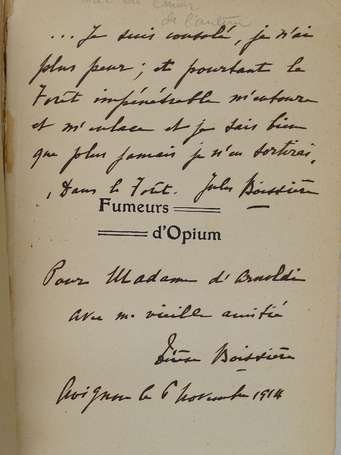 de l'auteur
... Je suis consolé, je n'ai
plus peur ; et pourtant la
Forêt impénétrable m'entoure
et m'enlace et je sais bien
que plus jamais je n'en sortirai,
Dans la Forêt. Jules Boissière
Fumeurs
d'Opium
Pour Madame d'Arnoldi
avec ma vieille amitié
Boissière
Avignon le 6 Novembre 1914